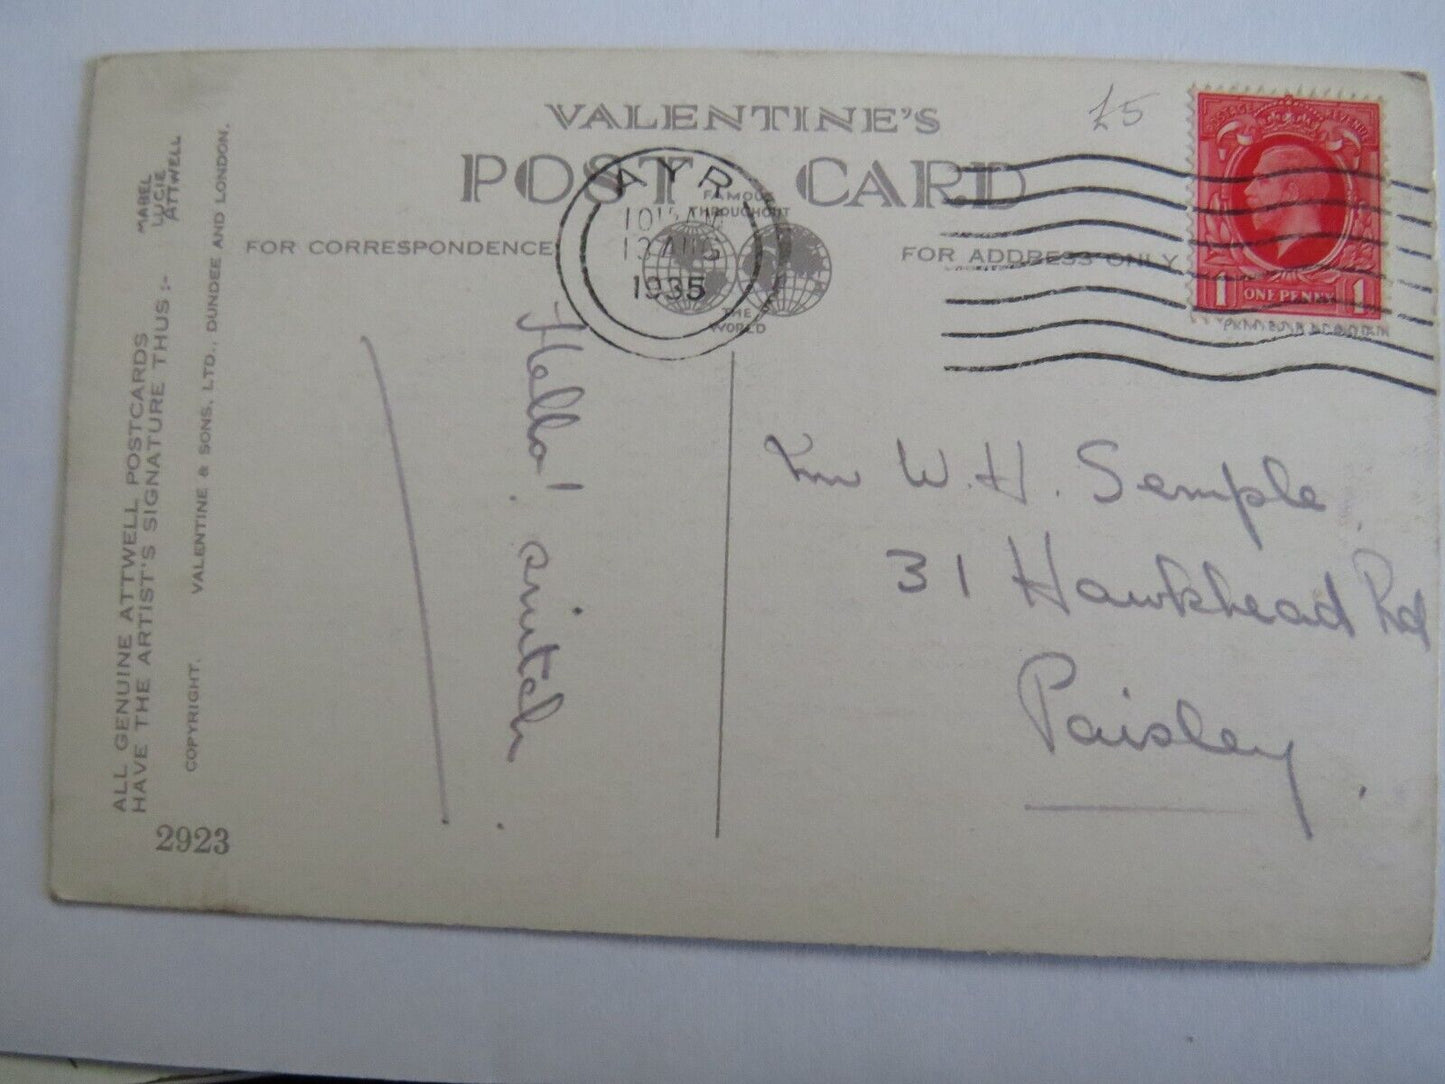 VALENTINE'S
POST CARD
FAMOUS
THROUGHOUT
THE
WORLD
FOR CORRESPONDENCE
FOR ADDRESS ONLY
AYR
AUG
1935
£5
1 ONE PENNY 1
Hello!
W. H. Semple
31 Hawkhead Rd
Paisley.
ALL GENUINE ATTWELL POSTCARDS
HAVE THE ARTIST'S SIGNATURE THUS :-
MABEL
LUCIE
ATTWELL
COPYRIGHT. VALENTINE & SONS, LTD., DUNDEE AND LONDON.
2923